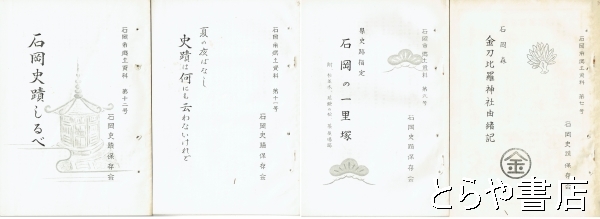 石岡市郷土資料 第十二号
石岡史蹟しるべ
石岡史蹟保存会
石岡市郷土資料 第十一号
夏の夜ばなし
史蹟は何にも云わないけれど
石岡史蹟保存会
石岡市郷土資料 第八号
県史蹟指定
石岡の一里塚
石岡史蹟保存会
石岡市郷土資料 第七号
石岡森
金刀比羅神社由緒記
石岡史蹟保存会
金
とらや書店